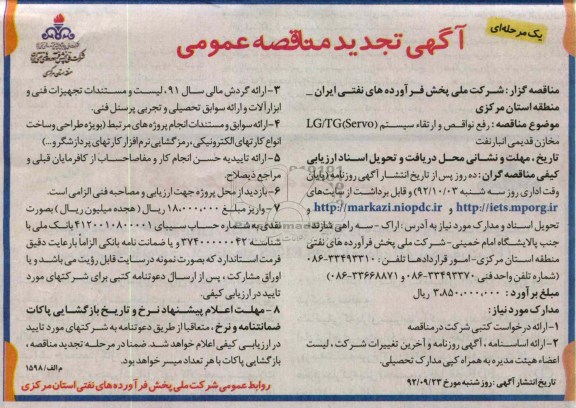 یک مرحله‌ای
آگهی تجدید مناقصه عمومی
مناقصه گزار : شرکت ملی پخش فرآورده های نفتی ایران _
منطقه استان مرکزی
موضوع مناقصه : رفع نواقص و ارتقاء سیستم LG/TG(Servo)
مخازن قدیمی انبار نفت
تاریخ ، مهلت و نشانی محل دریافت و تحویل اسناد ارزیابی
کیفی مناقصه گران : ده روز پس از تاریخ انتشار آگهی روزنامه و پایان
وقت اداری روز سه شنبه ۹۲/۱۰/۰۳) و قابل برداشت از سایت‌های
http://iets.mporg.ir و http://markazi.niopdc.ir و
تحویل اسناد و مدارک مورد نیاز به آدرس : اراک - سه راهی شازند -
جنب پالایشگاه امام خمینی - شرکت ملی پخش فرآورده های نفتی
منطقه استان مرکزی - امور قراردادها تلفن : ۳۳۴۹۳۳۱۰-۰۸۶
(شماره تلفن واحد فنی ۳۳۴۹۳۳۷۰-۰۸۶ و ۳۳۶۶۸۸۷۱-۰۸۶)
مبلغ برآورد : ۳،۸۵۰،۰۰۰،۰۰۰ ریال
مدارک مورد نیاز :
۱- ارائه درخواست کتبی شرکت در مناقصه
۲- ارائه اساسنامه ، آگهی روزنامه و آخرین تغییرات شرکت ، لیست
اعضاء هیئت مدیره به همراه کپی مدارک تحصیلی.
تاریخ انتشار آگهی : روز شنبه مورخ ۹۲/۰۹/۲۳
۳- ارائه گردش مالی سال ۹۱ ، لیست و مستندات تجهیزات فنی و
ابزارآلات و ارائه سوابق تحصیلی و تجربی پرسنل فنی.
۴- ارائه سوابق و مستندات انجام پروژه های مرتبط (بویژه طراحی و ساخت
انواع کارتهای الکترونیکی ، رمزگشایی نرم افزار کارتهای پردازشگر و...)
۵- ارائه تاییدیه حسن انجام کار و مفاصاحساب از کارفرمایان قبلی و
مراجع ذیصلاح.
۶- بازدید از محل پروژه جهت ارزیابی و مصاحبه فنی الزامی است.
۷- واریز مبلغ ۱۸،۰۰۰،۰۰۰ ریال ( هجده میلیون ریال ) بصورت
نقدی به شماره حساب سیبای ۴۱۲۰۰۱۰۸۰۰۰۰۱ بانک ملی با
شناسه ۳۷۴۰۰۰۰۰۰۴۲ و یا ضمانت نامه بانکی الزاماً با رعایت دقیق
فرمت استاندارد که به‌صورت نمونه در سایت قابل رؤیت می باشد و یا
اوراق مشارکت ، پس از ارسال دعوتنامه کتبی برای شرکتهای مورد
تایید در ارزیابی کیفی.
۸ - مهلت اعلام پیشنهاد نرخ و تاریخ بازگشایی پاکات
ضمانتنامه و نرخ ، متعاقبا از طریق دعوتنامه به شرکتهای مورد تایید
در ارزیابی کیفی اعلام خواهد شد. ضمنا در مرحله تجدید مناقصه ،
بازگشایی پاکات با هر تعداد میسر خواهد بود.
م الف/۱۵۹۸
روابط عمومی شرکت ملی پخش فرآورده های نفتی استان مرکزی